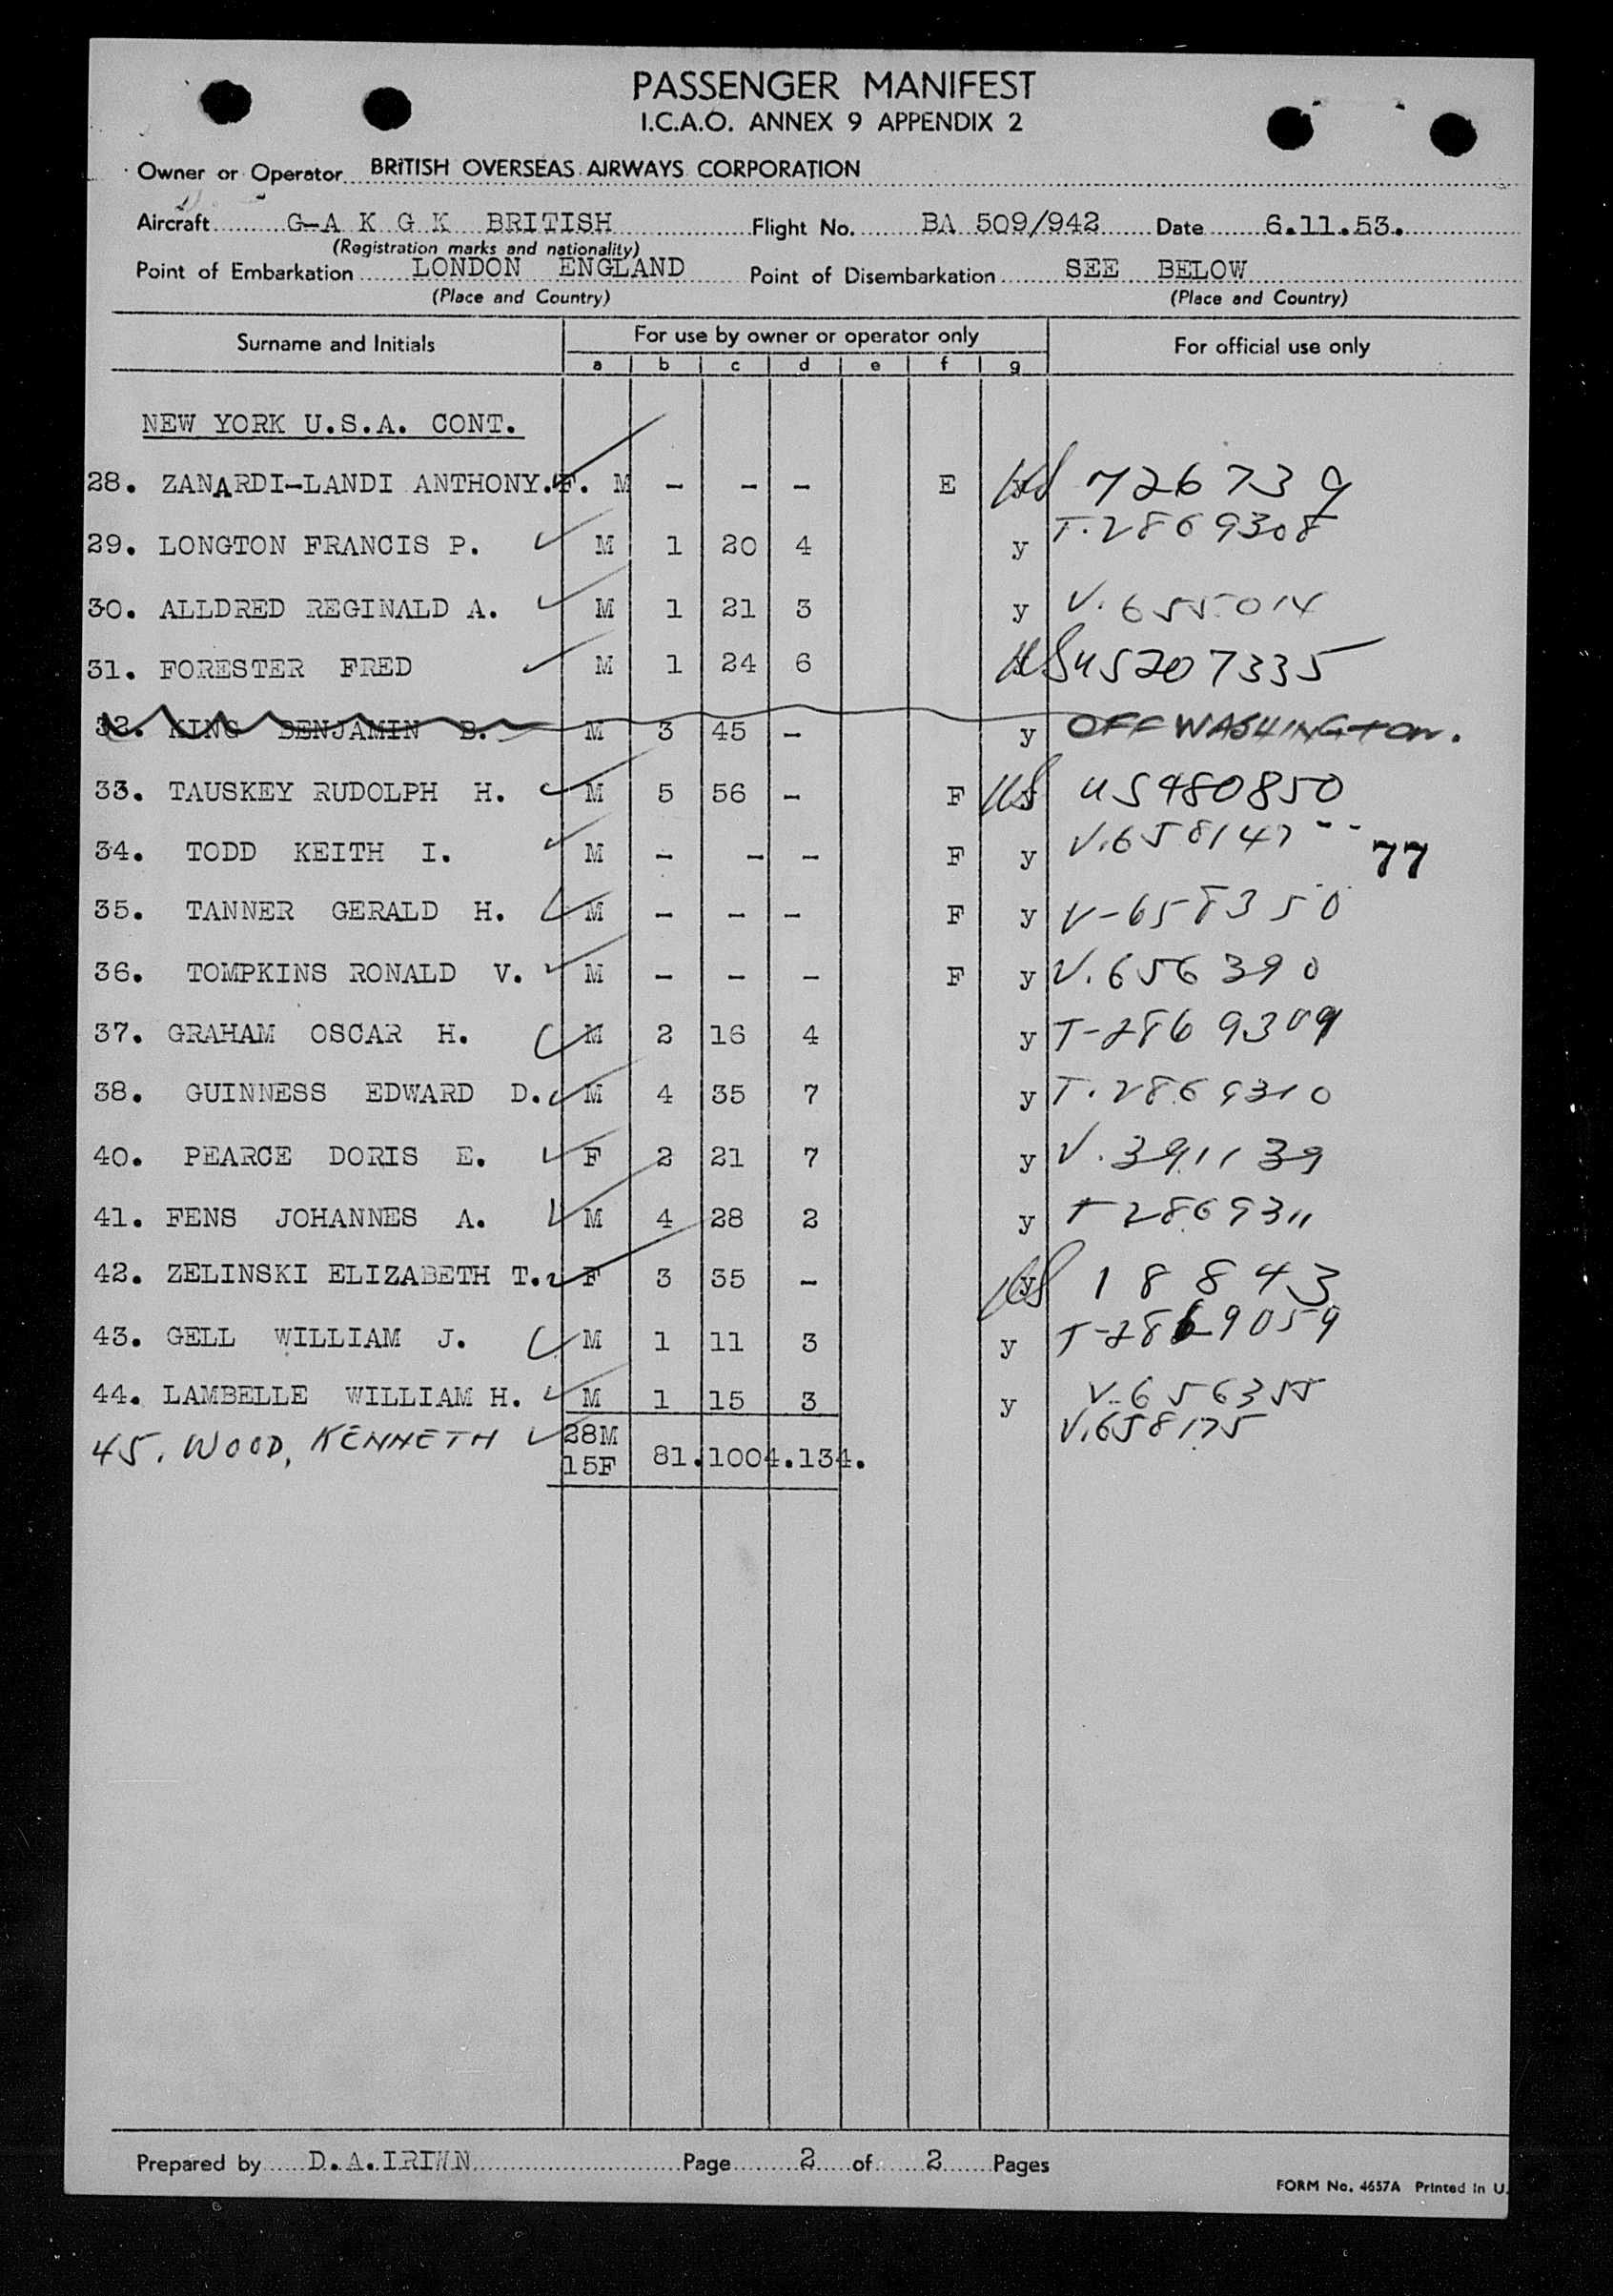 PASSENGER MANIFEST
I.C.A.O. ANNEX 9 APPENDIX 2
Owner or Operator BRITISH OVERSEAS AIRWAYS CORPORATION
Aircraft G-A K G K BRITISH Flight No. BA 509/942 Date 6.11.53.
(Registration marks and nationality)
Point of Embarkation LONDON ENGLAND Point of Disembarkation SEE BELOW
(Place and Country) (Place and Country)
Surname and Initials For use by owner or operator only For official use only
a b c d e f g
NEW YORK U.S.A. CONT.
28. ZANARDI-LANDI ANTHONY.F. M - - - E US 726739
29. LONGTON FRANCIS P. M 1 20 4 y T.2869308
30. ALLDRED REGINALD A. M 1 21 3 y V.655014
31. FORESTER FRED M 1 24 6 US US207335
32. KING BENJAMIN B. M 3 45 - y OFF WASHINGTON.
33. TAUSKEY RUDOLPH H. M 5 56 - F US US480850
34. TODD KEITH I. M - - - F y V.658147 77
35. TANNER GERALD H. M - - - F y V-658350
36. TOMPKINS RONALD V. M - - - F y V.656390
37. GRAHAM OSCAR H. M 2 16 4 y T-2869309
38. GUINNESS EDWARD D. M 4 35 7 y T.2869310
40. PEARCE DORIS E. F 2 21 7 y V.391139
41. FENS JOHANNES A. M 4 28 2 y T2869311
42. ZELINSKI ELIZABETH T. F 3 35 - US 18843
43. GELL WILLIAM J. M 1 11 3 y T-2869059
44. LAMBELLE WILLIAM H. M 1 15 3 y V.656355
45. WOOD, KENNETH 28M V.658175
15F 81.1004.134.
Prepared by D.A.IRIWN Page 2 of 2 Pages
FORM No. 4657A Printed in U.